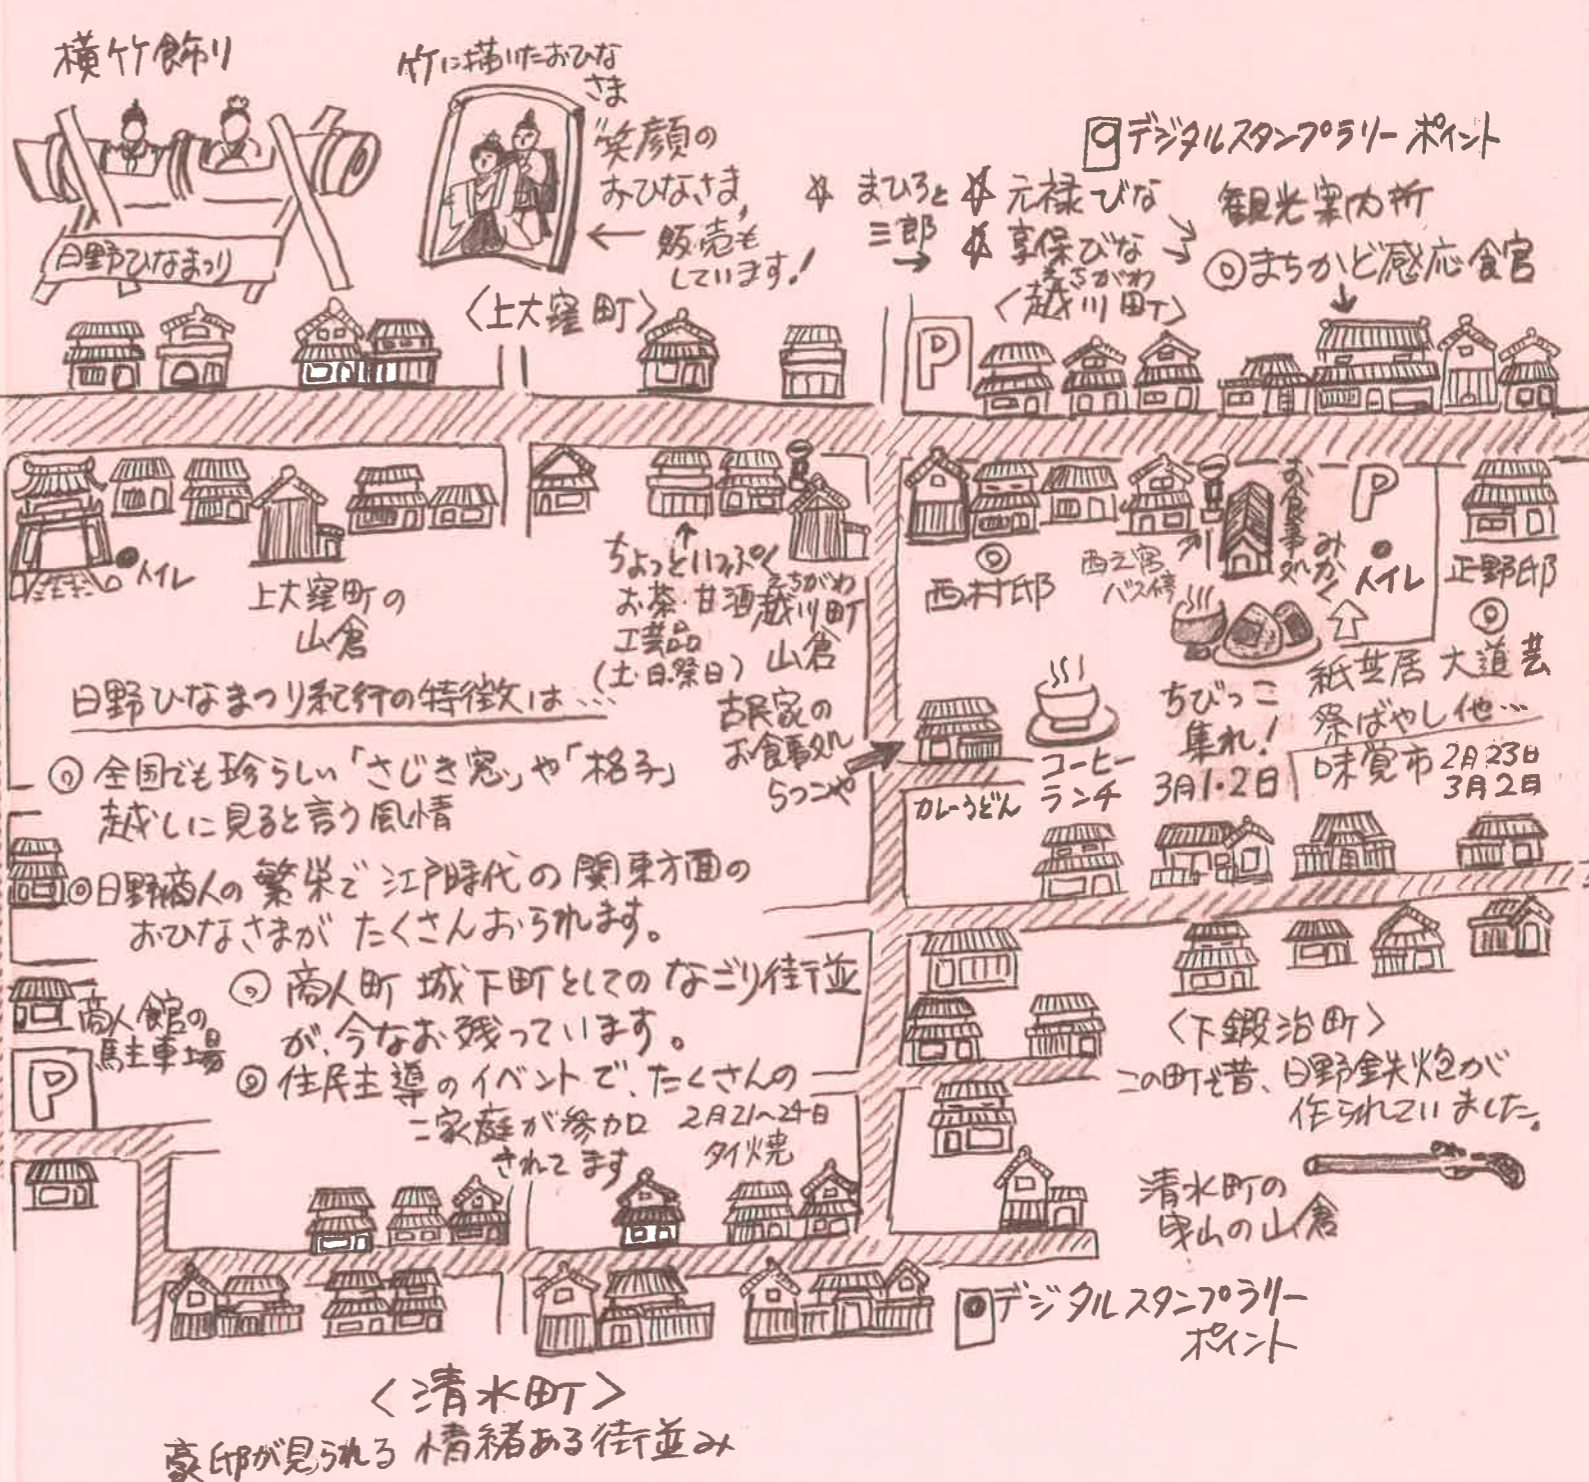 横竹飾り
日野ひなまつり
竹に描いたおひな
さま
"笑顔の
おひなさま"
販売も
しています!
デジタルスタンプラリー ポイント
☆ まひろと
三郎
→
☆ 元禄びな
☆ 享保びな
観光案内所
◎まちかど感応館
〈上大窪町〉
えちがわ
〈越川町〉
P
トイレ
上大窪町の
山倉
ちょっといっぷく
お茶・甘酒
工芸品
(土・日・祭日)
えちがわ
越川町
山倉
◎
西村邸
西之宮
バス停
お食事処
みかく
P
トイレ
正野邸
◎
紙芝居 大道芸
祭ばやし他…
ちびっこ
集れ!
3月1・2日
味覚市 2月23日
3月2日
古民家の
お食事処
らっこや
コーヒー
ランチ
カレーうどん
日野ひなまつり紀行の特徴は…
◎全国でも珍らしい「さじき窓」や「格子」
越しに見ると言う風情
◎日野商人の繁栄で江戸時代の関東方面の
おひなさまがたくさんおられます。
◎商人町 城下町としてのなごり街並
が、今なお残っています。
◎住民主導のイベントで、たくさんの
ご家庭が参加
されてます
商人館の
駐車場
P
2月21〜24日
タイ焼
〈下鍛治町〉
この町で昔、日野鉄炮が
作られていました。
清水町の
曳山の山倉
デジタルスタンプラリー
ポイント
〈清水町〉
豪邸が見られる 情緒ある街並み